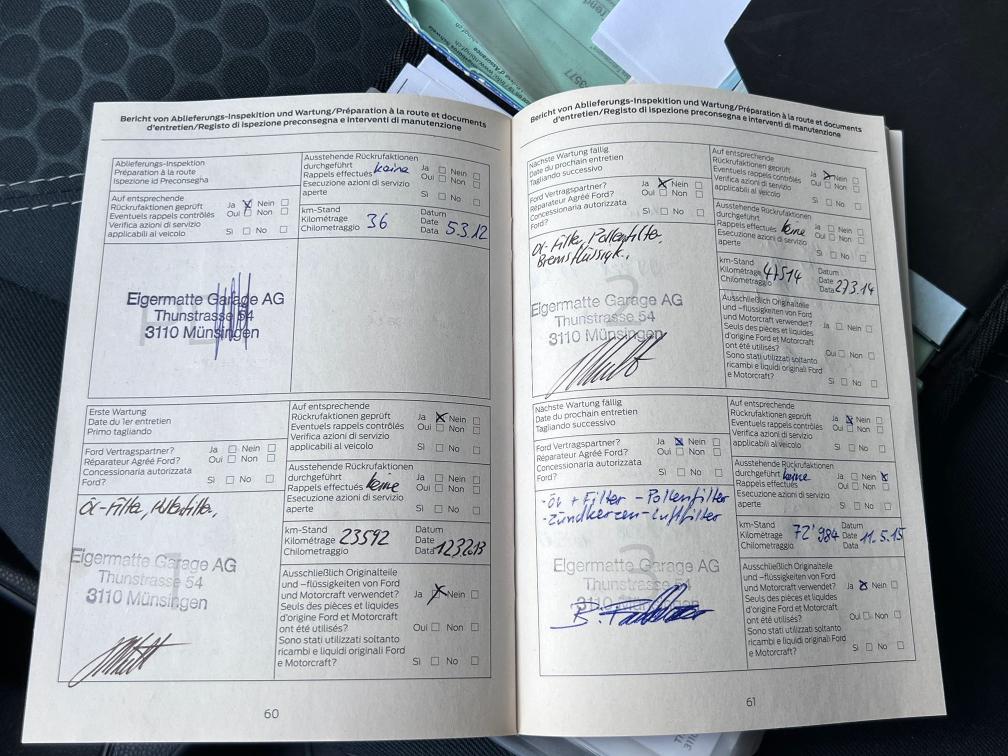 Bericht von Ablieferungs-Inspekition und Wartung/Préparation à la route et documents
d'entretien/Registo di ispezione preconsegna e interventi di manutenzione
Ablieferungs-Inspektion
Préparation à la route
Ispezione id Preconsegha
Ausstehende Rückrufaktionen
durchgeführt Ja Nein
Rappels effectués keine Oui Non
Esecuzione azioni di servizio
aperte Sì No
Auf entsprechende
Rückrufaktionen geprüft Ja Nein
Eventuels rappels contrôlés Oui Non
Verifica azioni di servizio
applicabili al veicolo Sì No
km-Stand
Kilométrage 36
Chilometraggio
Datum
Date
Data 5.3.12
Eigermatte Garage AG
Thunstrasse 54
3110 Münsingen
Erste Wartung
Date du 1er entretien
Primo tagliando
Auf entsprechende
Rückrufaktionen geprüft Ja Nein
Eventuels rappels contrôlés Oui Non
Verifica azioni di servizio
applicabili al veicolo Sì No
Ford Vertragspartner? Ja Nein
Réparateur Agréé Ford? Oui Non
Concessionaria autorizzata
Ford? Sì No
Ausstehende Rückrufaktionen
durchgeführt Ja Nein
Rappels effectués keine Oui Non
Esecuzione azioni di servizio
aperte Sì No
Öl-Filter,
km-Stand
Kilométrage 23592
Chilometraggio
Datum
Date
Data 12.3.2013
Eigermatte Garage AG
Thunstrasse 54
3110 Münsingen
Ausschließlich Originalteile
und –flüssigkeiten von Ford
und Motorcraft verwendet? Ja Nein
Seuls des pièces et liquides
d'origine Ford et Motorcraft
ont été utilisés? Oui Non
Sono stati utilizzati soltanto
ricambi e liquidi originali Ford
e Motorcraft? Sì No
60
Bericht von Ablieferungs-Inspekition und Wartung/Préparation à la route et documents
d'entretien/Registo di ispezione preconsegna e interventi di manutenzione
Nächste Wartung fällig
Date du prochain entretien
Tagliando successivo
Auf entsprechende
Rückrufaktionen geprüft Ja Nein
Eventuels rappels contrôlés Oui Non
Verifica azioni di servizio
applicabili al veicolo Sì No
Ford Vertragspartner? Ja Nein
Réparateur Agréé Ford? Oui Non
Concessionaria autorizzata
Ford? Sì No
Ausstehende Rückrufaktionen
durchgeführt Ja Nein
Rappels effectués keine Oui Non
Esecuzione azioni di servizio
aperte Sì No
Öl-Filter, Pollenfilter,
Bremsflüssigk.,
km-Stand
Kilométrage 47514
Chilometraggio
Datum
Date
Data 27.3.14
Eigermatte Garage AG
Thunstrasse 54
3110 Münsingen
Ausschließlich Originalteile
und –flüssigkeiten von Ford
und Motorcraft verwendet? Ja Nein
Seuls des pièces et liquides
d'origine Ford et Motorcraft
ont été utilisés? Oui Non
Sono stati utilizzati soltanto
ricambi e liquidi originali Ford
e Motorcraft? Sì No
Nächste Wartung fällig
Date du prochain entretien
Tagliando successivo
Auf entsprechende
Rückrufaktionen geprüft Ja Nein
Eventuels rappels contrôlés Oui Non
Verifica azioni di servizio
applicabili al veicolo Sì No
Ford Vertragspartner? Ja Nein
Réparateur Agréé Ford? Oui Non
Concessionaria autorizzata
Ford? Sì No
Ausstehende Rückrufaktionen
durchgeführt keine Ja Nein
Rappels effectués Oui Non
Esecuzione azioni di servizio
aperte Sì No
- Öl + Filter - Pollenfilter
- Zündkerzen - Luftfilter
km-Stand
Kilométrage 72'984
Chilometraggio
Datum
Date
Data 11.5.15
Eigermatte Garage AG
Thunstrasse 54
3110 Münsingen
Ausschließlich Originalteile
und –flüssigkeiten von Ford
und Motorcraft verwendet? Ja Nein
Seuls des pièces et liquides
d'origine Ford et Motorcraft
ont été utilisés? Oui Non
Sono stati utilizzati soltanto
ricambi e liquidi originali Ford
e Motorcraft? Sì No
61